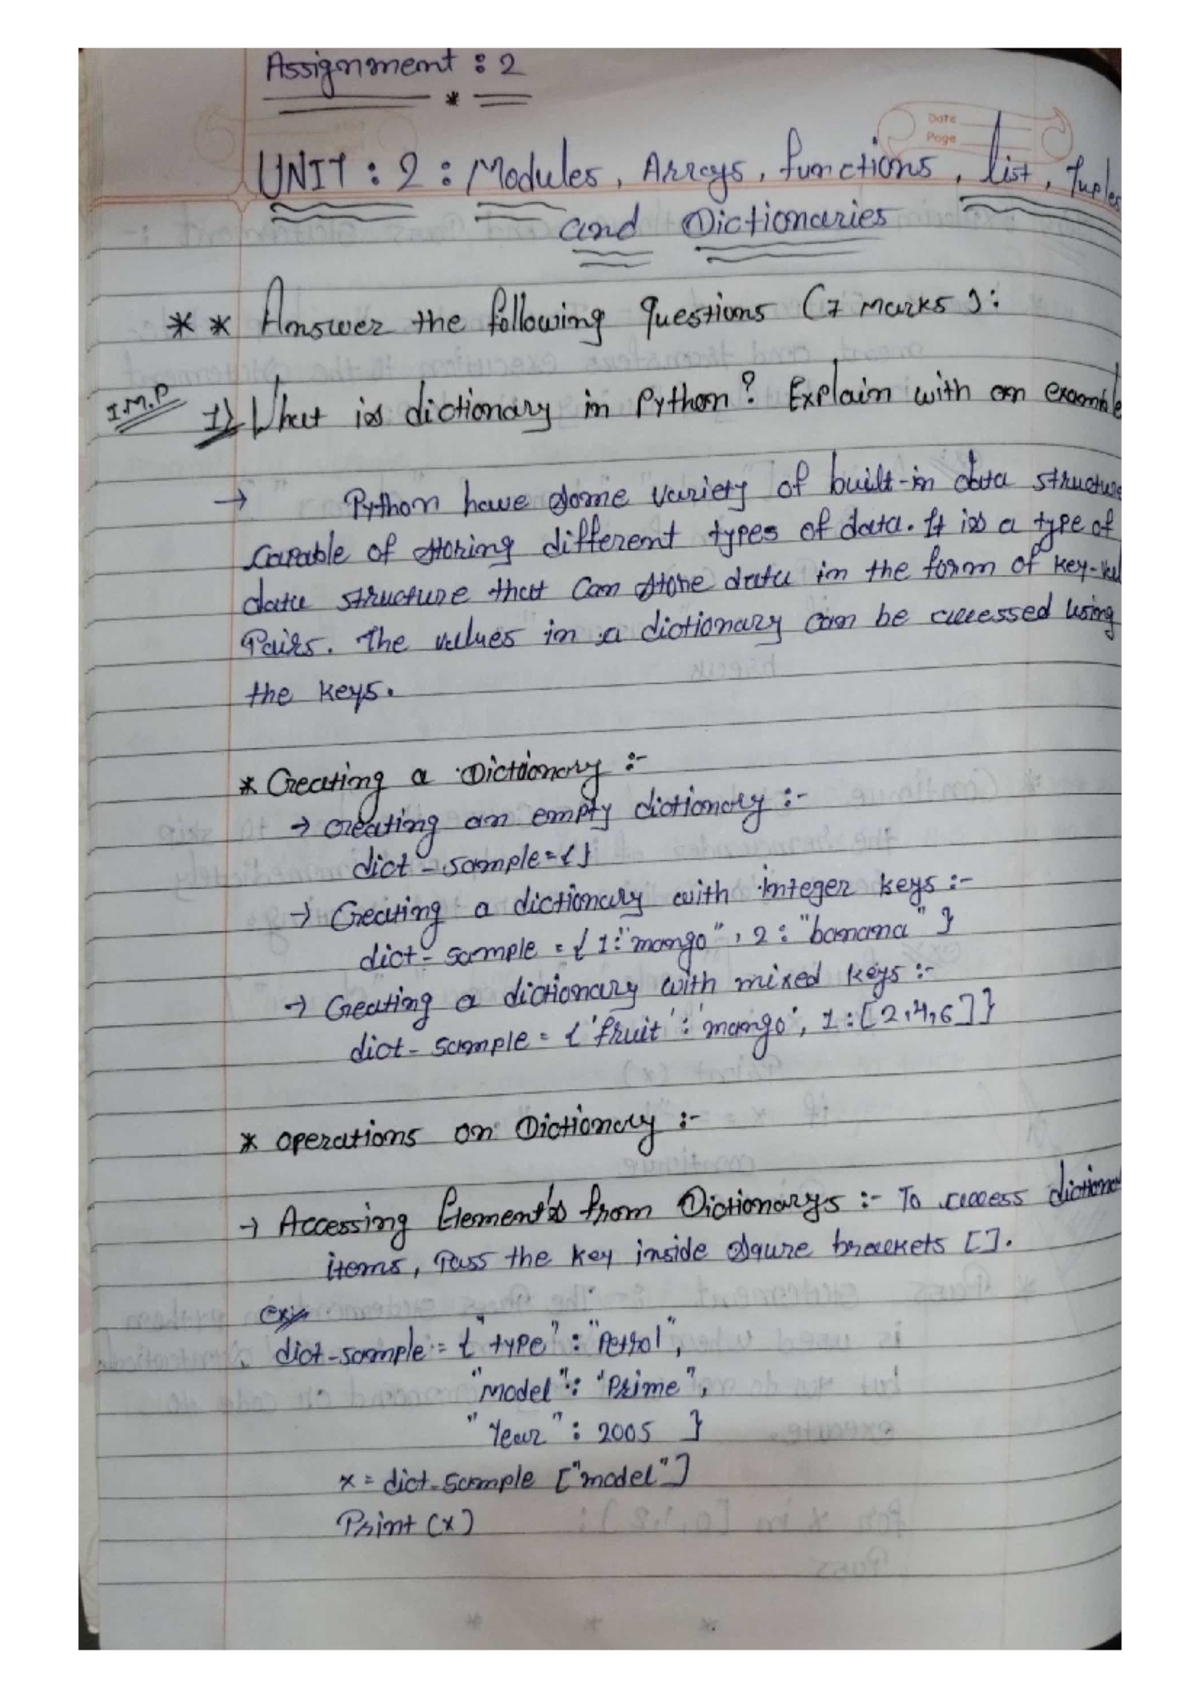 Assignment : 2
Date
Page
UNIT : 2 : Modules, Arrays, functions, list, Tuples
and Dictionaries
** Answer the following questions (7 marks):
I.M.P
1) What is dictionary in Python? Explain with an example
→ Python have some variety of built-in data structure
capable of storing different types of data. It is a type of
data structure that can store data in the form of key-val
Pairs. The values in a dictionary can be accessed using
the keys.
* Creating a Dictionary :-
→ creating an empty dictionary :-
dict-sample={}
→ Creating a dictionary with integer keys :-
dict-sample = { 1:"mango", 2 : "banana" }
→ Creating a dictionary with mixed keys :-
dict-sample = { 'fruit' : 'mango', 1:[2,4,6]}
* operations on Dictionary :-
→ Accessing Element's from Dictionarys :- To access dictiona
items, Pass the key inside sqaure brackets [].
ex:
dict-sample = { "type" : "Petrol",
"model" : "Prime",
"Year" : 2005 }
x = dict-sample ["model"]
Print (x)